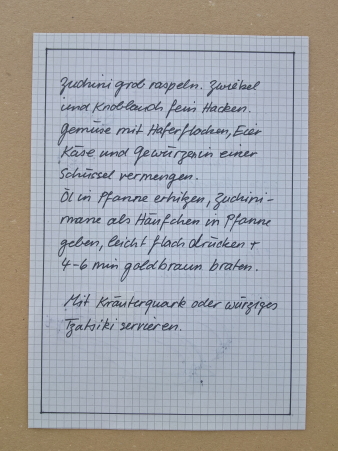 Zuchini grob raspeln. Zwiebel
und Knoblauch fein Hacken.
Gemüse mit Haferflocken, Eier
Käse und Gewürzen in einer
Schüssel vermengen.
Öl in Pfanne erhitzen, Zuchini-
masse als Häufchen in Pfanne
geben, leicht flach drücken +
4-6 min goldbraun braten.
Mit Kräuterquark oder würziges
Tzatsiki servieren.